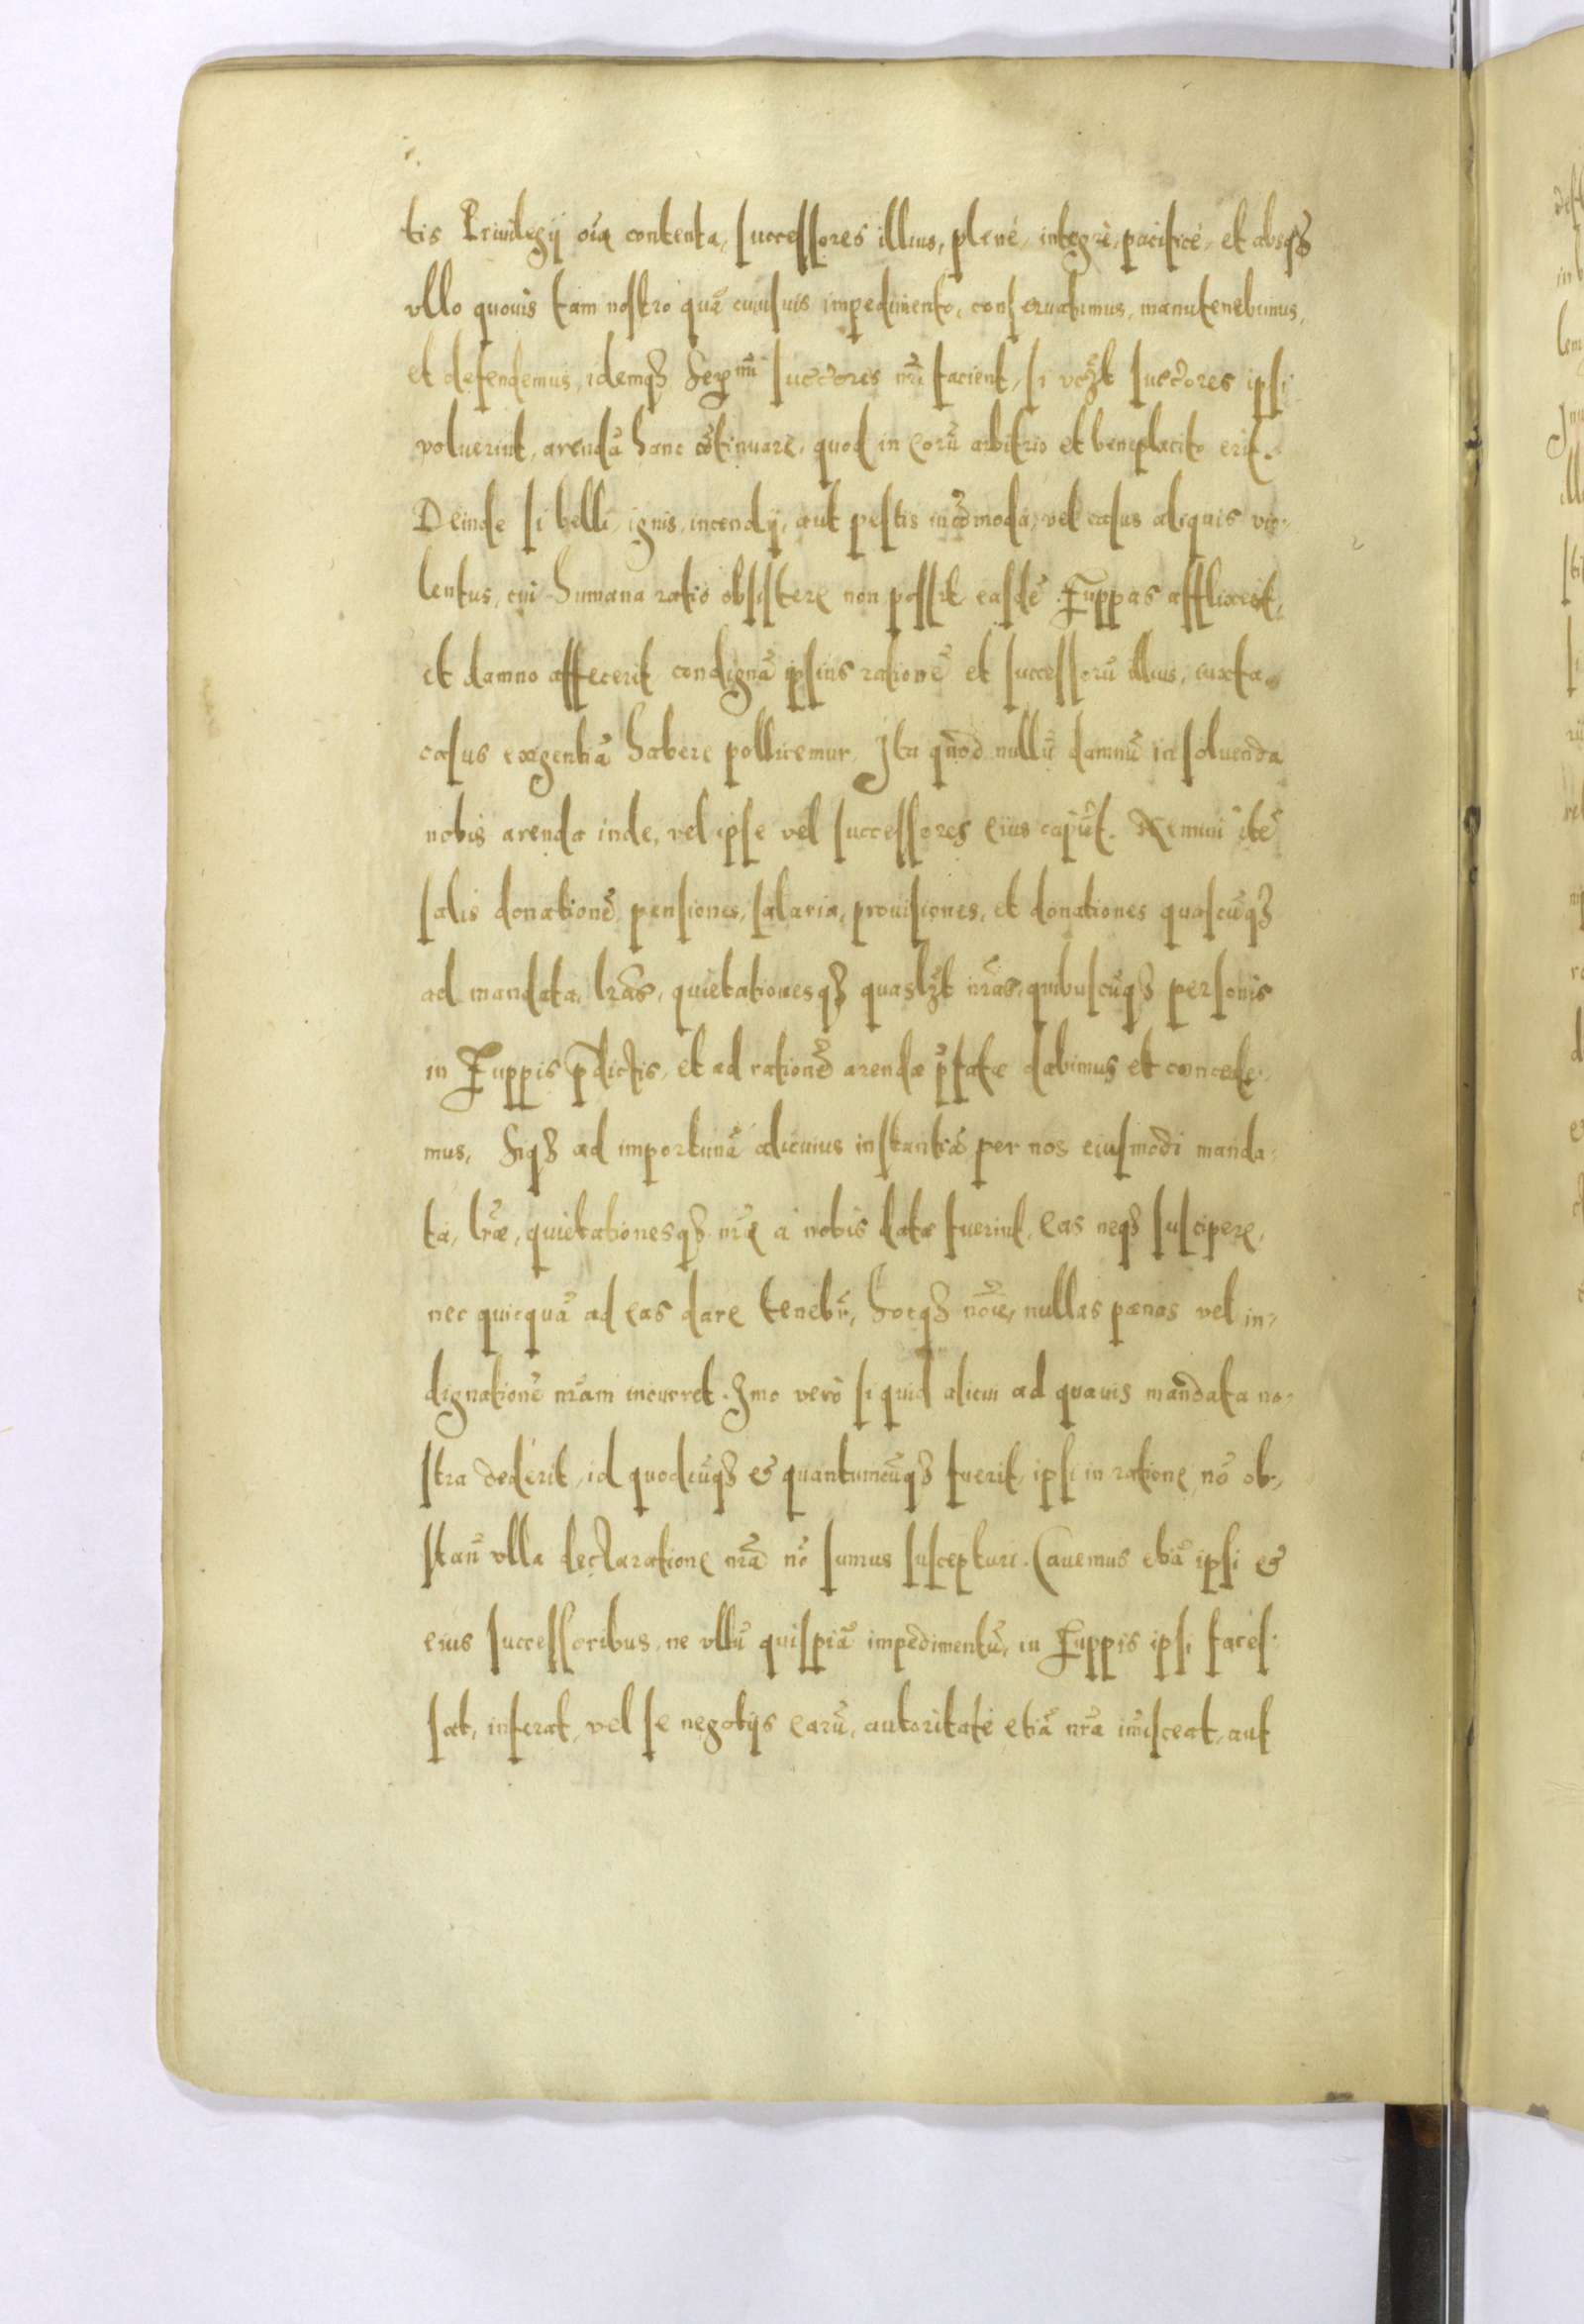 tis Priuilegij oĩa contenta, successores illius, plenè, integrè, pacificè, et absqȝ
vllo quouis tam nostro quã cuiusuis impedimento, conseruabimus, manutenebimus,
et defendemus, idemqȝ Serᵐⁱ succ̃ores nr̃i facient, si vcȝt succ̃ores ipsi
voluerint, arendã hanc cõtinuare, quod in eorũ arbitrio et beneplacito erit.
Deinde si belli, ignis, incendij, aut pestis incõmoda, vel casus aliquis vio-
lentus, cui humana ratio obsistere non possit, easdẽ Zuppas afflixerit,
et damno affecerit, condignã ipsius rationẽ et successorũ illius, iuxta
casus exigentiã habere pollicemur. Ita quòd nullũ damnũ in soluenda
nobis arenda inde, vel ipse vel successores eius capiẽt. Nemini itẽ
salis donationẽ, pensiones, salaria, prouisiones, et donationes quascũqȝ
ad mandata, lr̃as, quietationesqȝ quaslȝt nr̃as, quibuscũqȝ personis
in Zuppis p̃dictis, et ad rationẽ arendæ p̃fatæ dabimus et concede-
mus, Siqȝ ad importunã alicuius instantiã, per nos eiusmodi manda-
ta, lr̃æ, quietationesqȝ nr̃æ à nobis datæ fuerint, eas neqȝ suscipere,
nec quicquã ad eas dare tenebr̃, hocqȝ nõie, nullas pænas vel in-
dignationẽ nr̃am incurret. Imo verò si quid alicui ad quauis mandata no-
stra dederit, id quodcũqȝ & quantumcũqȝ fuerit, ipsi in ratione, nõ ob-
stañ vlla declaratione nr̃a nõ sumus suscepturi. Cauemus etiã ipsi &
eius successoribus, ne vllũ quispiã impedimentũ, in Zuppis ipsi faces-
sat, inferat, vel se negotijs earũ, autoritate etiã nr̃a im̃isceat, aut